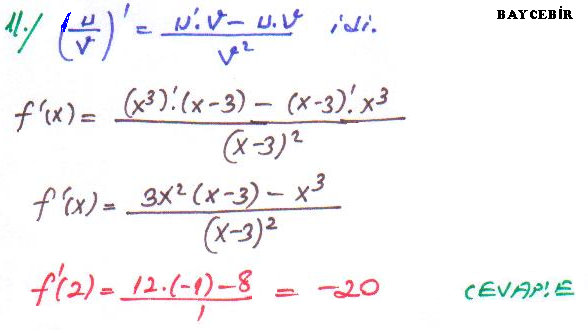 BAYCEBİR
11./ (u/v)' = (u'.v - u.v)/v² idi.
f'(x) = ((x³)'.(x-3) - (x-3)'.x³)/(x-3)²
f'(x) = (3x²(x-3) - x³)/(x-3)²
f'(2) = (12.(-1)-8)/1 = -20 CEVAP:E